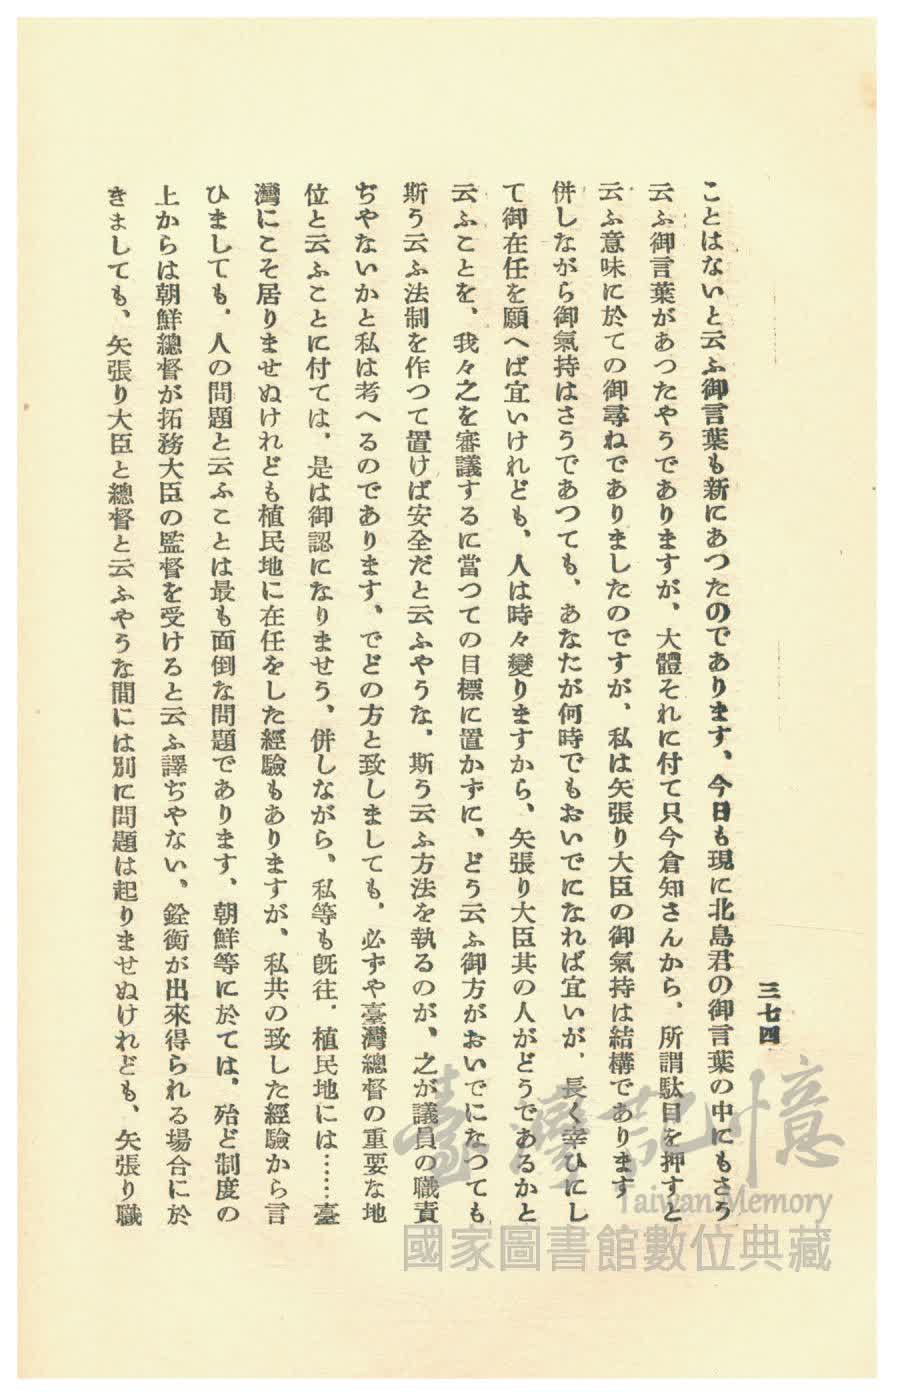 三七四
ことはないと云ふ御言葉も新にあつたのであります、今日も現に北島君の御言葉の中にもさう
云ふ御言葉があつたやうでありますが、大體それに付て只今倉知さんから、所謂駄目を押すと
云ふ意味に於ての御尋ねでありましたのですが、私は矢張り大臣の御氣持は結構であります
併しながら御氣持はさうであつても、あなたが何時でもおいでになれば宜いが、長く幸ひにし
て御在任を願へば宜いけれども、人は時々變りますから、矢張り大臣其の人がどうであるかと
云ふことを、我々之を審議するに當つての目標に置かずに、どう云ふ御方がおいでになつても
斯う云ふ法制を作つて置けば安全だと云ふやうな、斯う云ふ方法を執るのが、之が議員の職責
ぢやないかと私は考へるのであります、でどの方と致しましても、必ずや臺灣總督の重要な地
位と云ふことに付ては、是は御認になりませう、併しながら、私等も旣往、植民地には……臺
灣にこそ居りませぬけれども植民地に在任をした經驗もありますが、私共の致した經驗から言
ひましても、人の問題と云ふことは最も面倒な問題であります、朝鮮等に於ては、殆ど制度の
上からは朝鮮總督が拓務大臣の監督を受けると云ふ譯ぢやない、銓衡が出來得られる場合に於
きましても、矢張り大臣と總督と云ふやうな間には別に問題は起りませぬけれども、矢張り職
臺灣記憶
Taiwan Memory
國家圖書館數位典藏